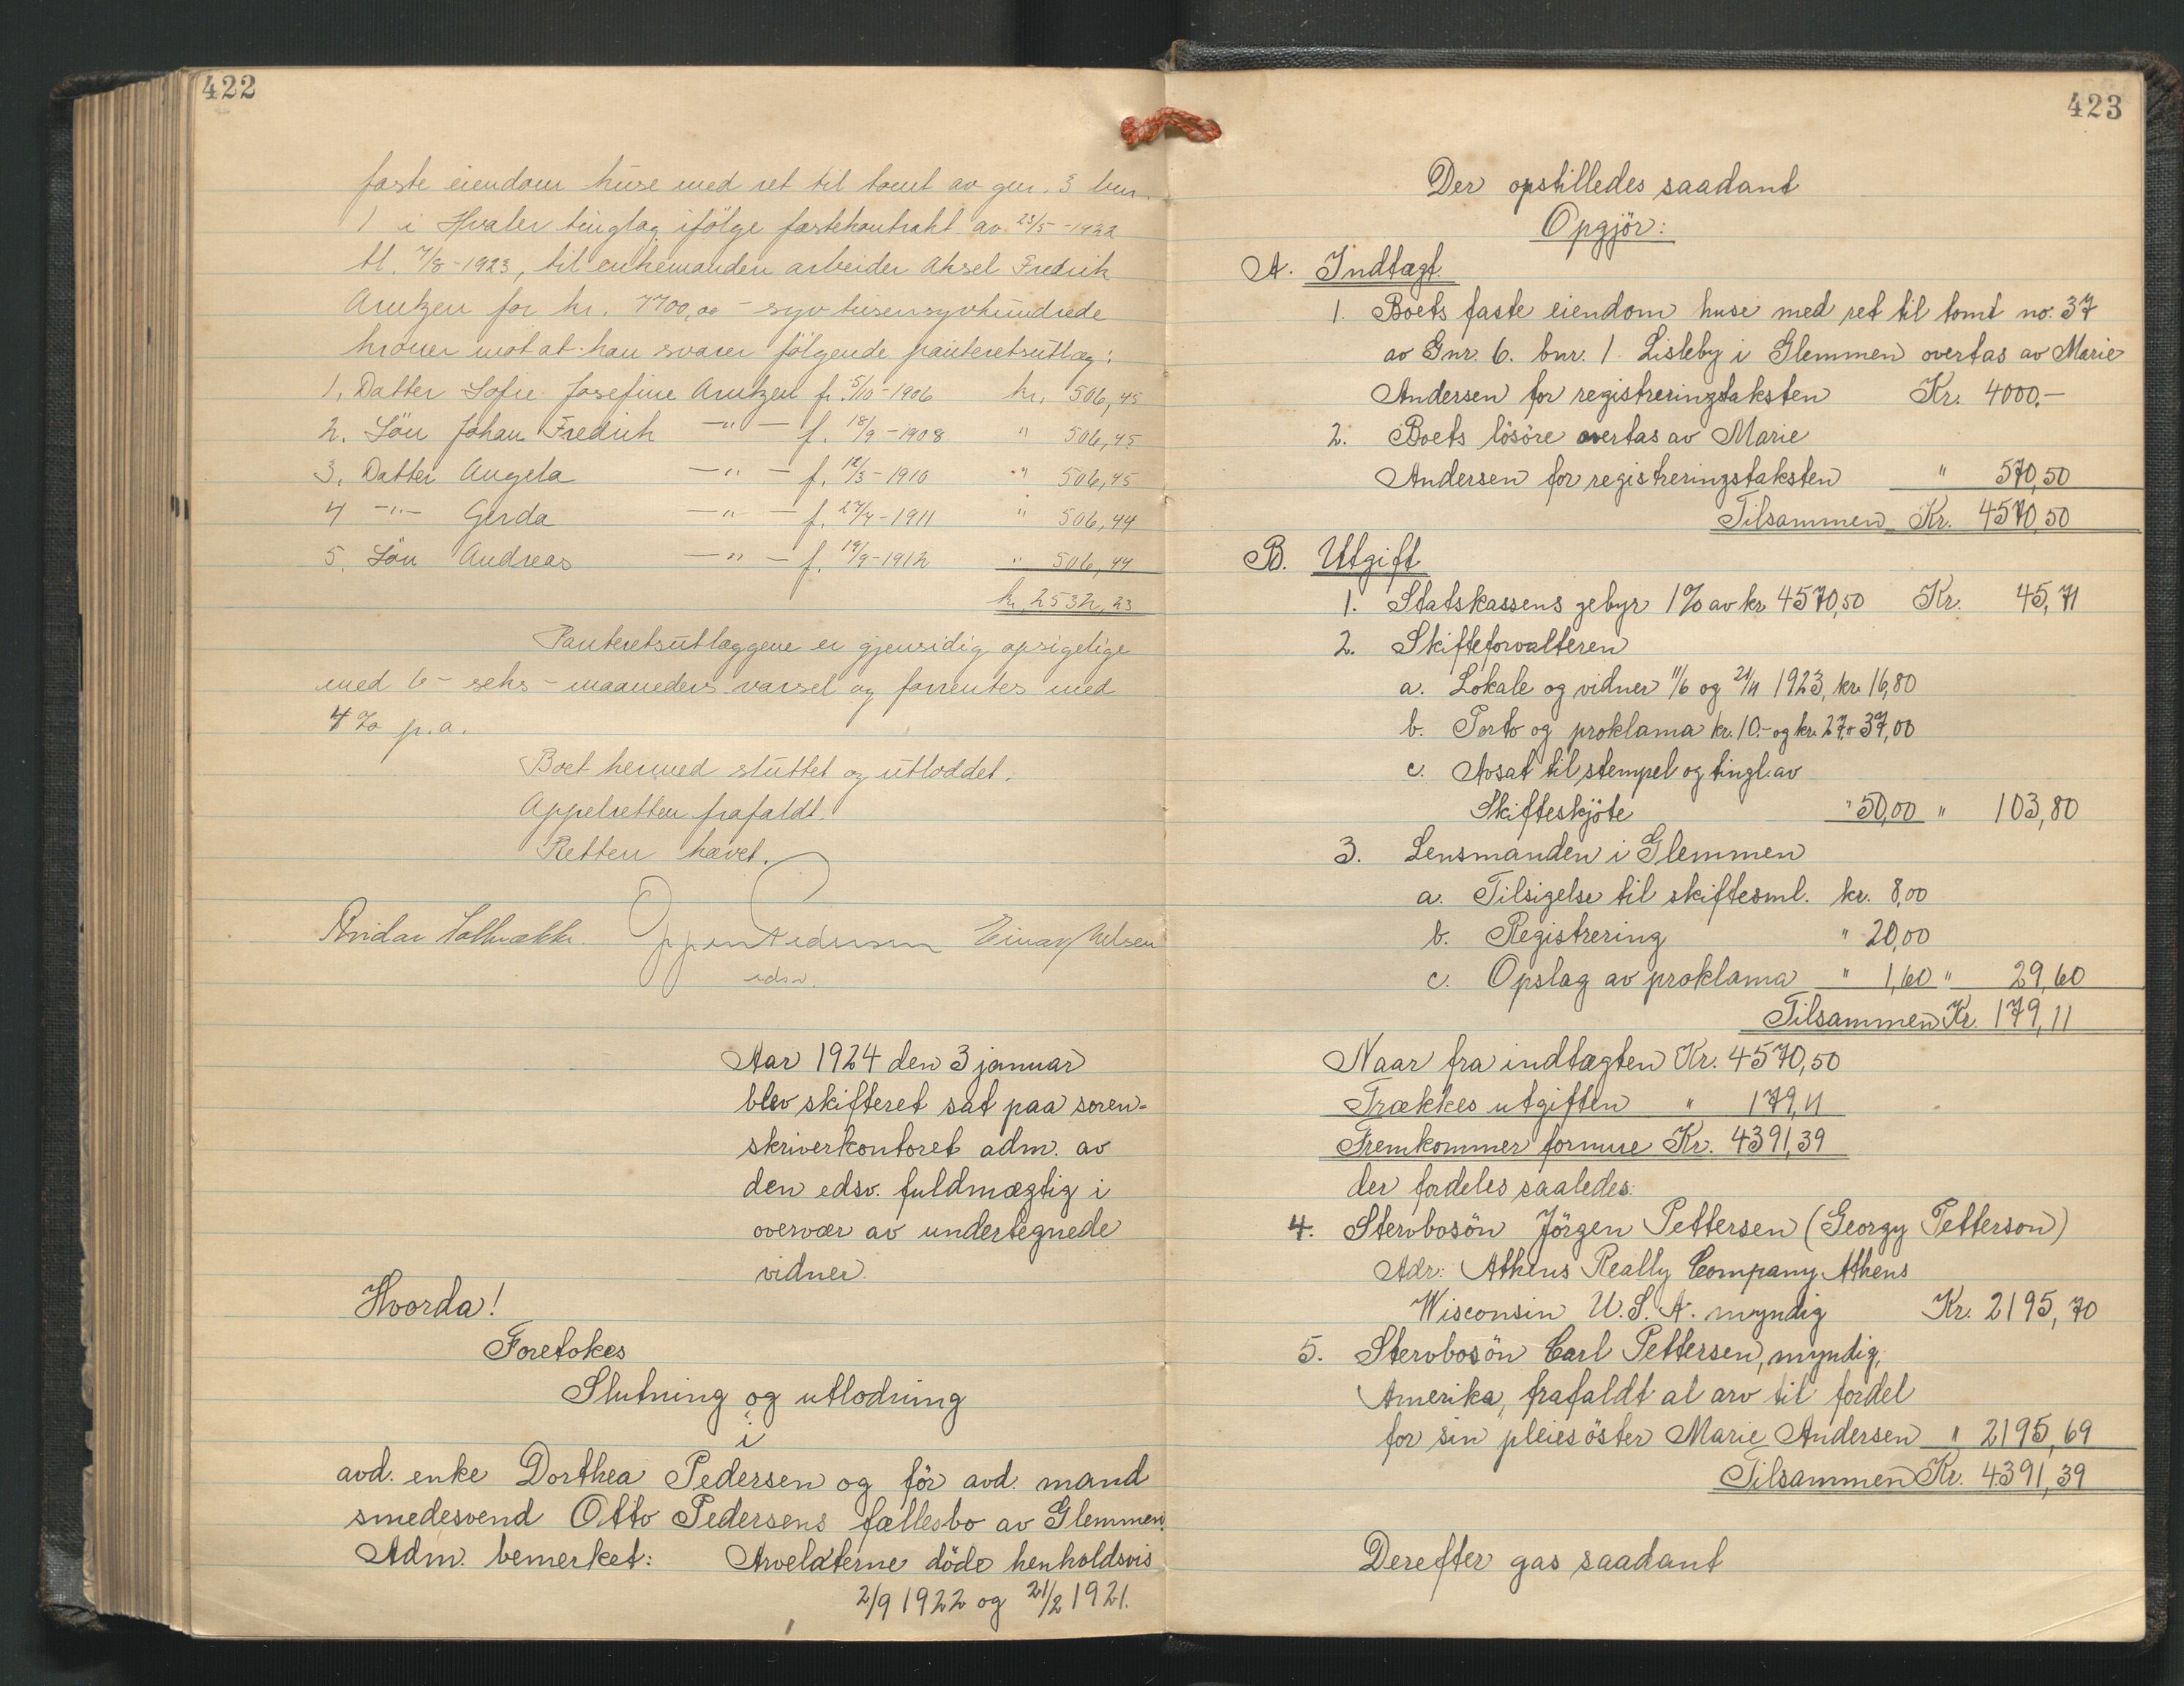 422
faste eiendom huse med ret til tomt av gnr. 3 bnr.
1 i Hvaler tinglag ifölge festekontrakt av 23/5-1922
tl. 7/8-1923, til enkemanden arbeider Aksel Fredrik
Arntzen for kr. 7700,00 - syv tusensyvhundrede
kroner mot at han svarer fölgende panteretsutlæg:
1. Datter Sofie Josefine Arntzen f. 5/10-1906 kr. 506,45
2. Sön Johan Fredrik -"- f. 18/9-1908 " 506,45
3. Datter Angela -"- f. 12/3-1910 " 506,45
4 -"- Gerda -"- f. 27/4-1911 " 506,44
5. Sön Andreas -"- f. 19/9-1912 " 506,44
kr. 2532,23
Panteretsutlæggene er gjensidig opsigelige
med 6 - seks - maaneders varsel og forrentes med
4 % p.a.
Boet hermed sluttet og utloddet.
Appelretten frafaldt.
Retten hævet.
Einar Nelsen
edsv.
Aar 1924 den 3 januar
blev skifteret sat paa soren-
skriverkontoret adm. av
den edsv. fuldmægtig i
overvær av undertegnede
vidner.
Hvorda!
Foretokes
Slutning og utlodning
i
avd. enke Dorthea Pedersen og för avd. mand
smedesvend Otto Pedersens fællesbo av Glemmen.
Adm. bemerket: Arveladerne döde henholdsvis
2/9 1922 og 21/2 1921.
423
Der opstilledes saadant
Opgjör:
A. Indtægt.
1. Boets faste eiendom huse med ret til tomt no. 37
av Gnr. 6. bnr. 1. Lisleby i Glemmen overtas av Marie
Andersen for registreringstaksten Kr. 4000.-
2. Boets lösöre overtas av Marie
Andersen for registreringstaksten " 570,50
Tilsammen Kr. 4570,50
B. Utgift
1. Statskassens gebyr 1% av kr 4570,50 Kr. 45,71
2. Skifteforvalteren
a. Lokale og vidner 11/6 og 24/11 1923, kr. 16,80
b. Porto og proklama kr. 10.- og kr. 27.- " 37,00
c. Avsat til stempel og tingl. av
Skifteskjöte " 50,00 " 103,80
3. Lensmanden i Glemmen
a. Tilsigelse til skiftesml. kr. 8,00
b. Registrering " 20,00
c. Opslag av proklama " 1,60 " 29,60
Tilsammen Kr. 179,11
Naar fra indtægten Kr. 4570,50
Trækkes utgiften " 179,11
Fremkommer formue Kr. 4391,39
der fordeles saaledes:
4. Stervbosön Jörgen Pettersen (Georgy Petterson)
Adr: Athens Really Company Athens
Wisconsin U.S.A. myndig Kr. 2195,70
5. Stervbosön Carl Pettersen, myndig,
Amerika, frafaldt al arv til fordel
for sin pleiesöster Marie Andersen " 2195,69
Tilsammen Kr. 4391,39
Derefter gas saadant